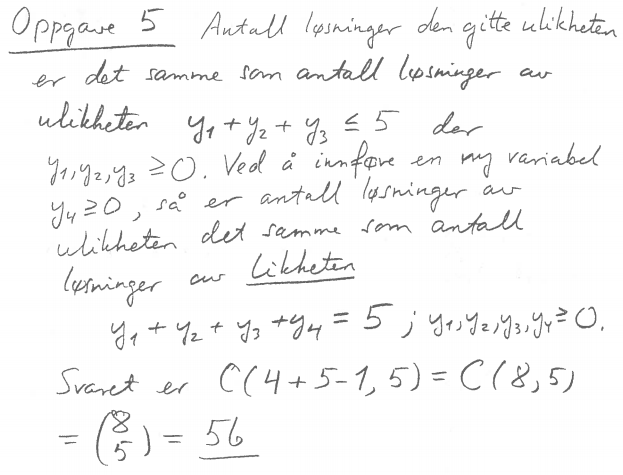 Oppgave 5 Antall løsninger den gitte ulikheten
er det samme som antall løsninger av
ulikheten y₁ + y₂ + y₃ ≤ 5 der
y₁, y₂, y₃ ≥ 0. Ved å innføre en ny variabel
y₄ ≥ 0, så er antall løsninger av
ulikheten det samme som antall
løsninger av likheten
y₁ + y₂ + y₃ + y₄ = 5 ; y₁, y₂, y₃, y₄ ≥ 0.
Svaret er C(4+5-1, 5) = C(8,5)
= (8 5) = 56